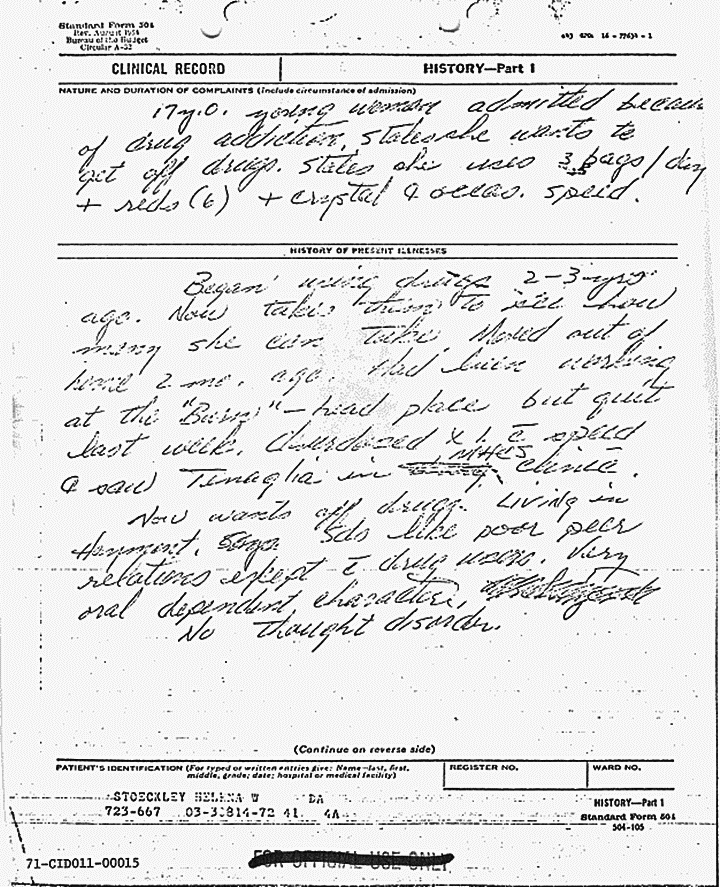 Standard Form 504
Rev. August 1954
Bureau of the Budget
Circular A-32
CLINICAL RECORD
HISTORY—Part 1
NATURE AND DURATION OF COMPLAINTS (Include circumstance of admission)
17 y.o. young woman admitted because
of drug addiction, states she wants to
get off drugs. States she uses 3 bags/day
+ reds (6) + crystal & occas. speed.
HISTORY OF PRESENT ILLNESSES
Began using drugs 2-3 yrs
ago. Now takes them to see how
many she can take. Moved out of
home 2 mo. ago. Had been working
at the "Barn"-head place but quit
last week. Overdosed x 1 c̄ speed
& saw Tenaglia in MHCS clinic.
Now wants off drugs. Living in
Haymont. Sds like poor peer
relations except c̄ drug users. Very
oral dependent character.
No thought disorder.
(Continue on reverse side)
PATIENT'S IDENTIFICATION (For typed or written entries give: Name—last, first,
middle, grade; date; hospital or medical facility)
REGISTER NO.
WARD NO.
STOECKLEY HELENA W DA
723-667 03-30814-72 41 4A
HISTORY—Part 1
Standard Form 504
504-105
71-CID011-00015
FOR OFFICIAL USE ONLY